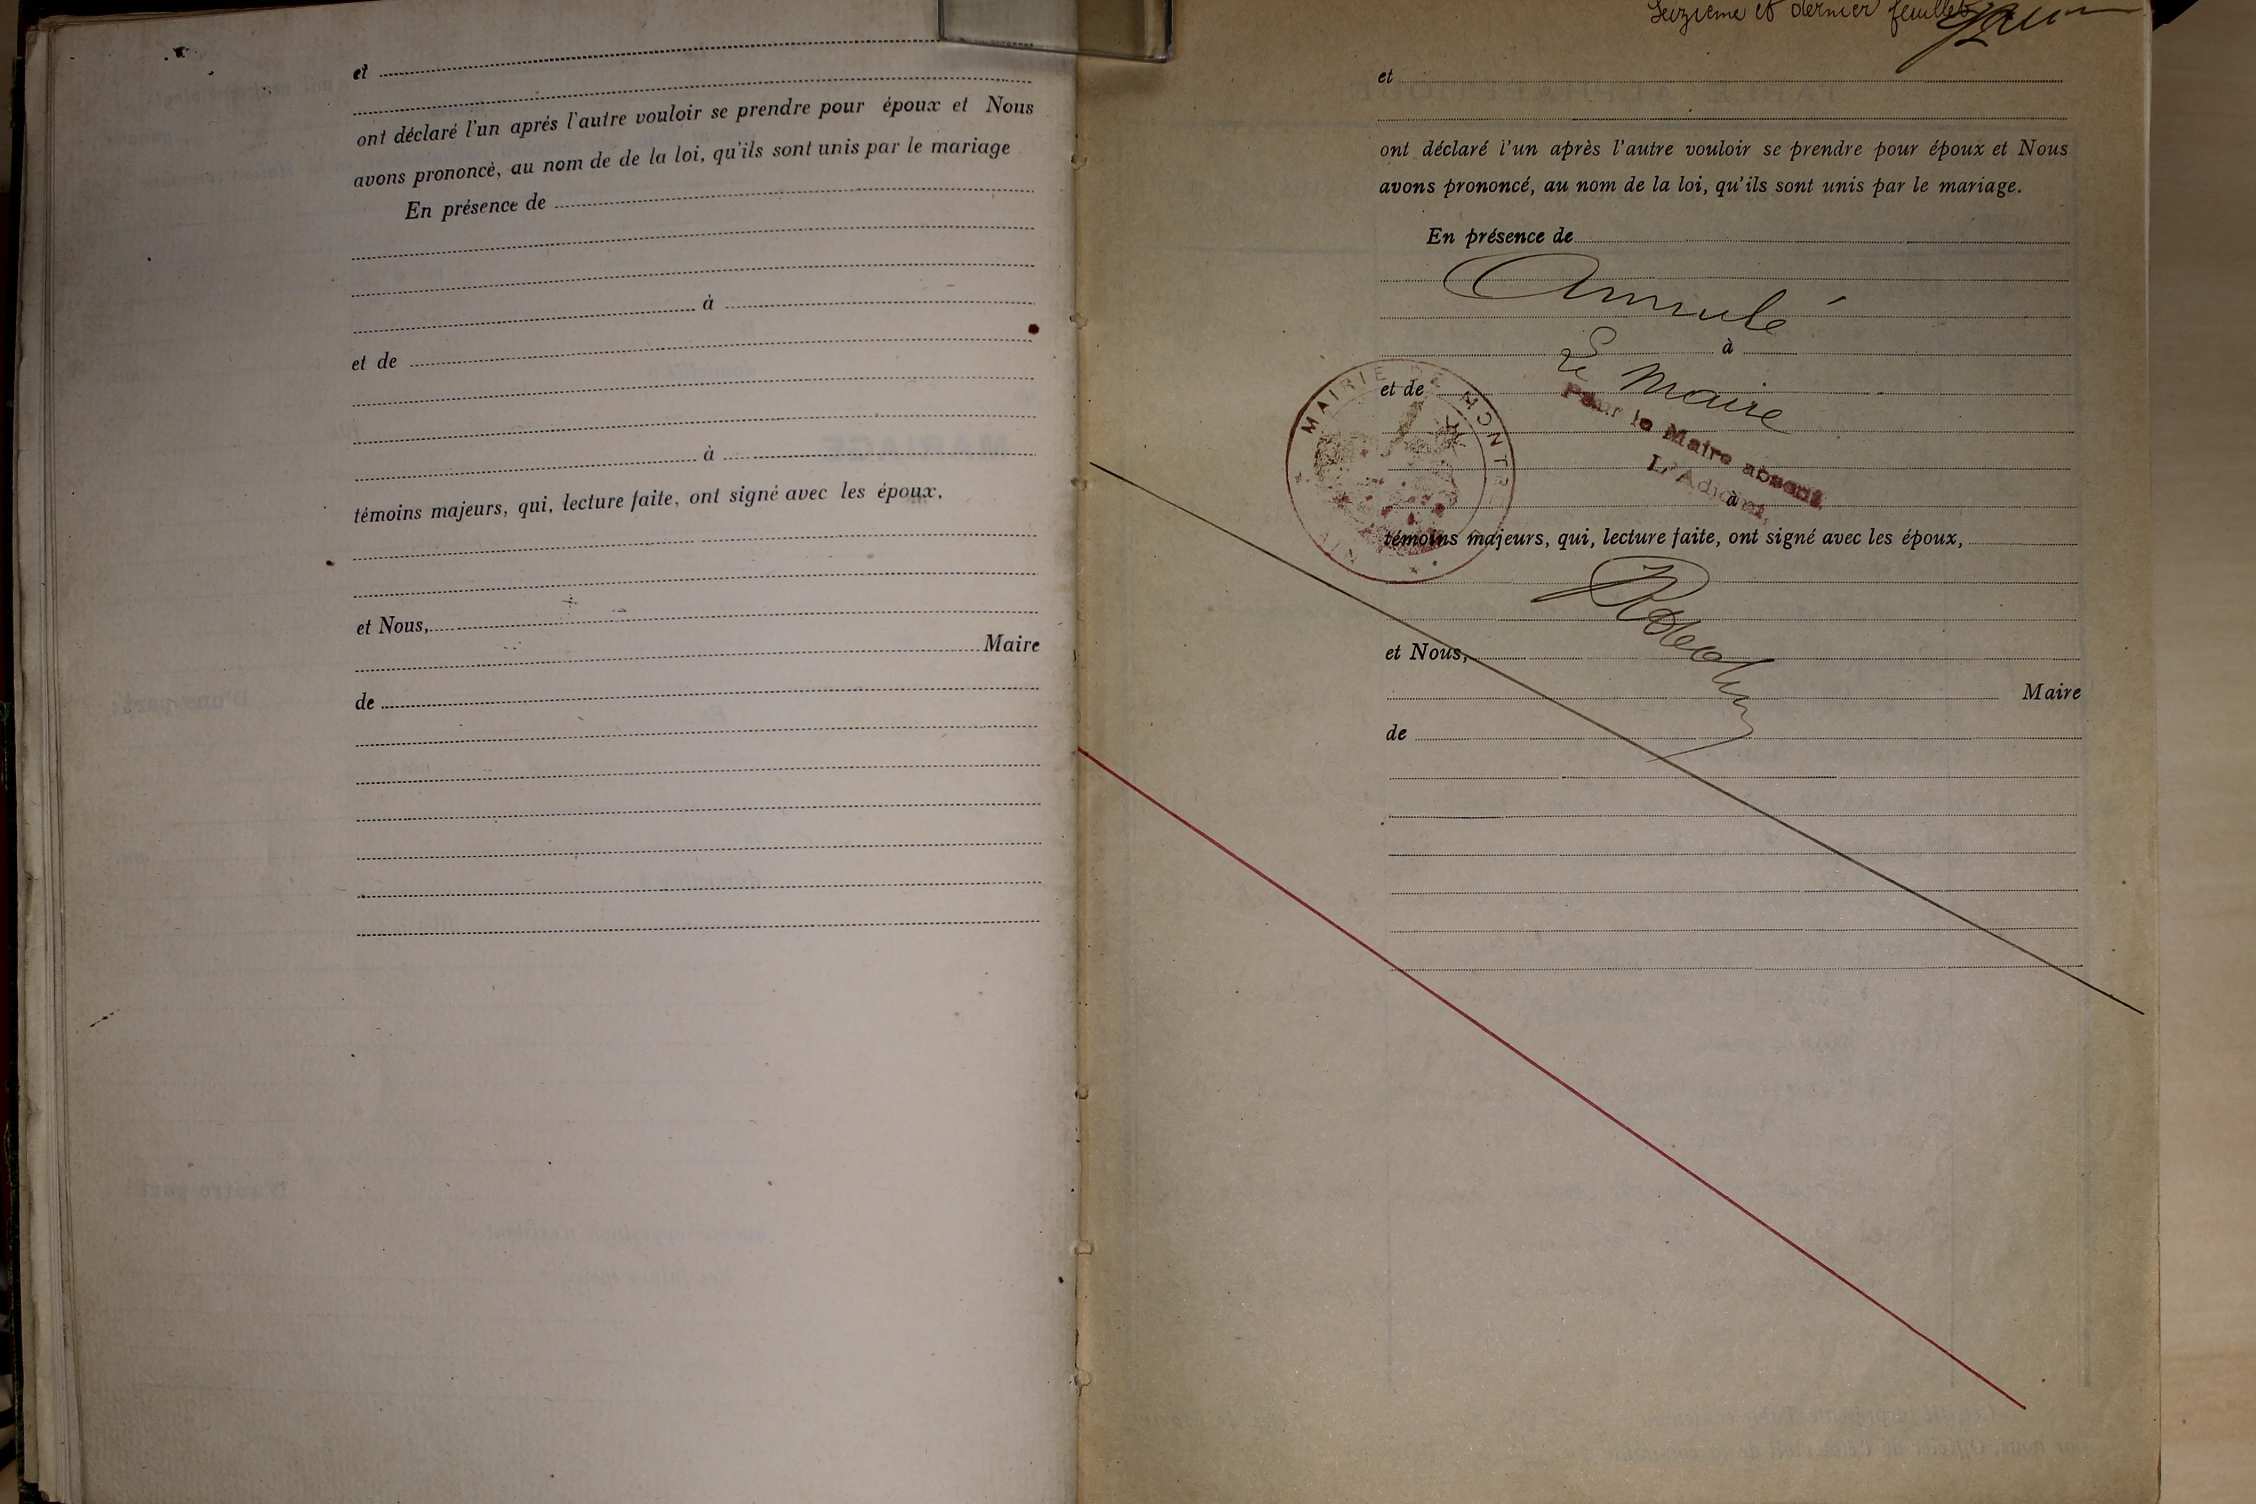 et
ont déclaré l'un aprés l'autre vouloir se prendre pour époux et Nous
avons prononcè, au nom de de la loi, qu'ils sont unis par le mariage
En présence de
à
et de
à
témoins majeurs, qui, lecture faite, ont signé avec les époux,
et Nous,
Maire
de
Seizieme et dernier feuillet
et
ont déclaré l'un après l'autre vouloir se prendre pour époux et Nous
avons prononcé, au nom de la loi, qu'ils sont unis par le mariage.
En présence de
Annulé
à
Le Maire
et de
MAIRIE DE MONTR
Pour le Maire absent
L'Adjoint,
à
témoins majeurs, qui, lecture faite, ont signé avec les époux,
et Nous,
Maire
de